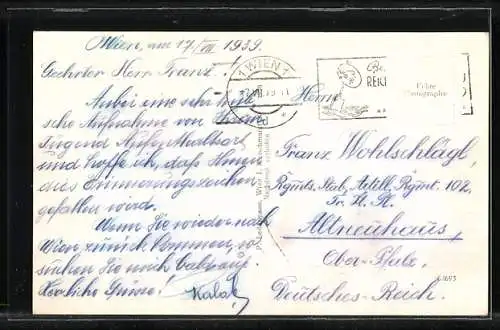 Wien, am 17/VII. 1939.
Geehrter Herr Franz!
Anbei eine sehr
sche Aufnahme von
Jugend Aufenthaltsort
und hoffe ich, daß Ihnen
dies Erinnerungszeichen
gefallen wird.
Wenn Sie wieder nach
Wien zurück kommen,
suchen Sie mich bald auf.
Herzliche Grüsse!
1 WIEN 1
REICH
Echte
Photographie
Herrn
Franz Wohlschlägl,
Rgmts. Stab, Artill. Rgmt. 102,
Altneuhaus,
Ober-Pfalz,
Deutsches-Reich.